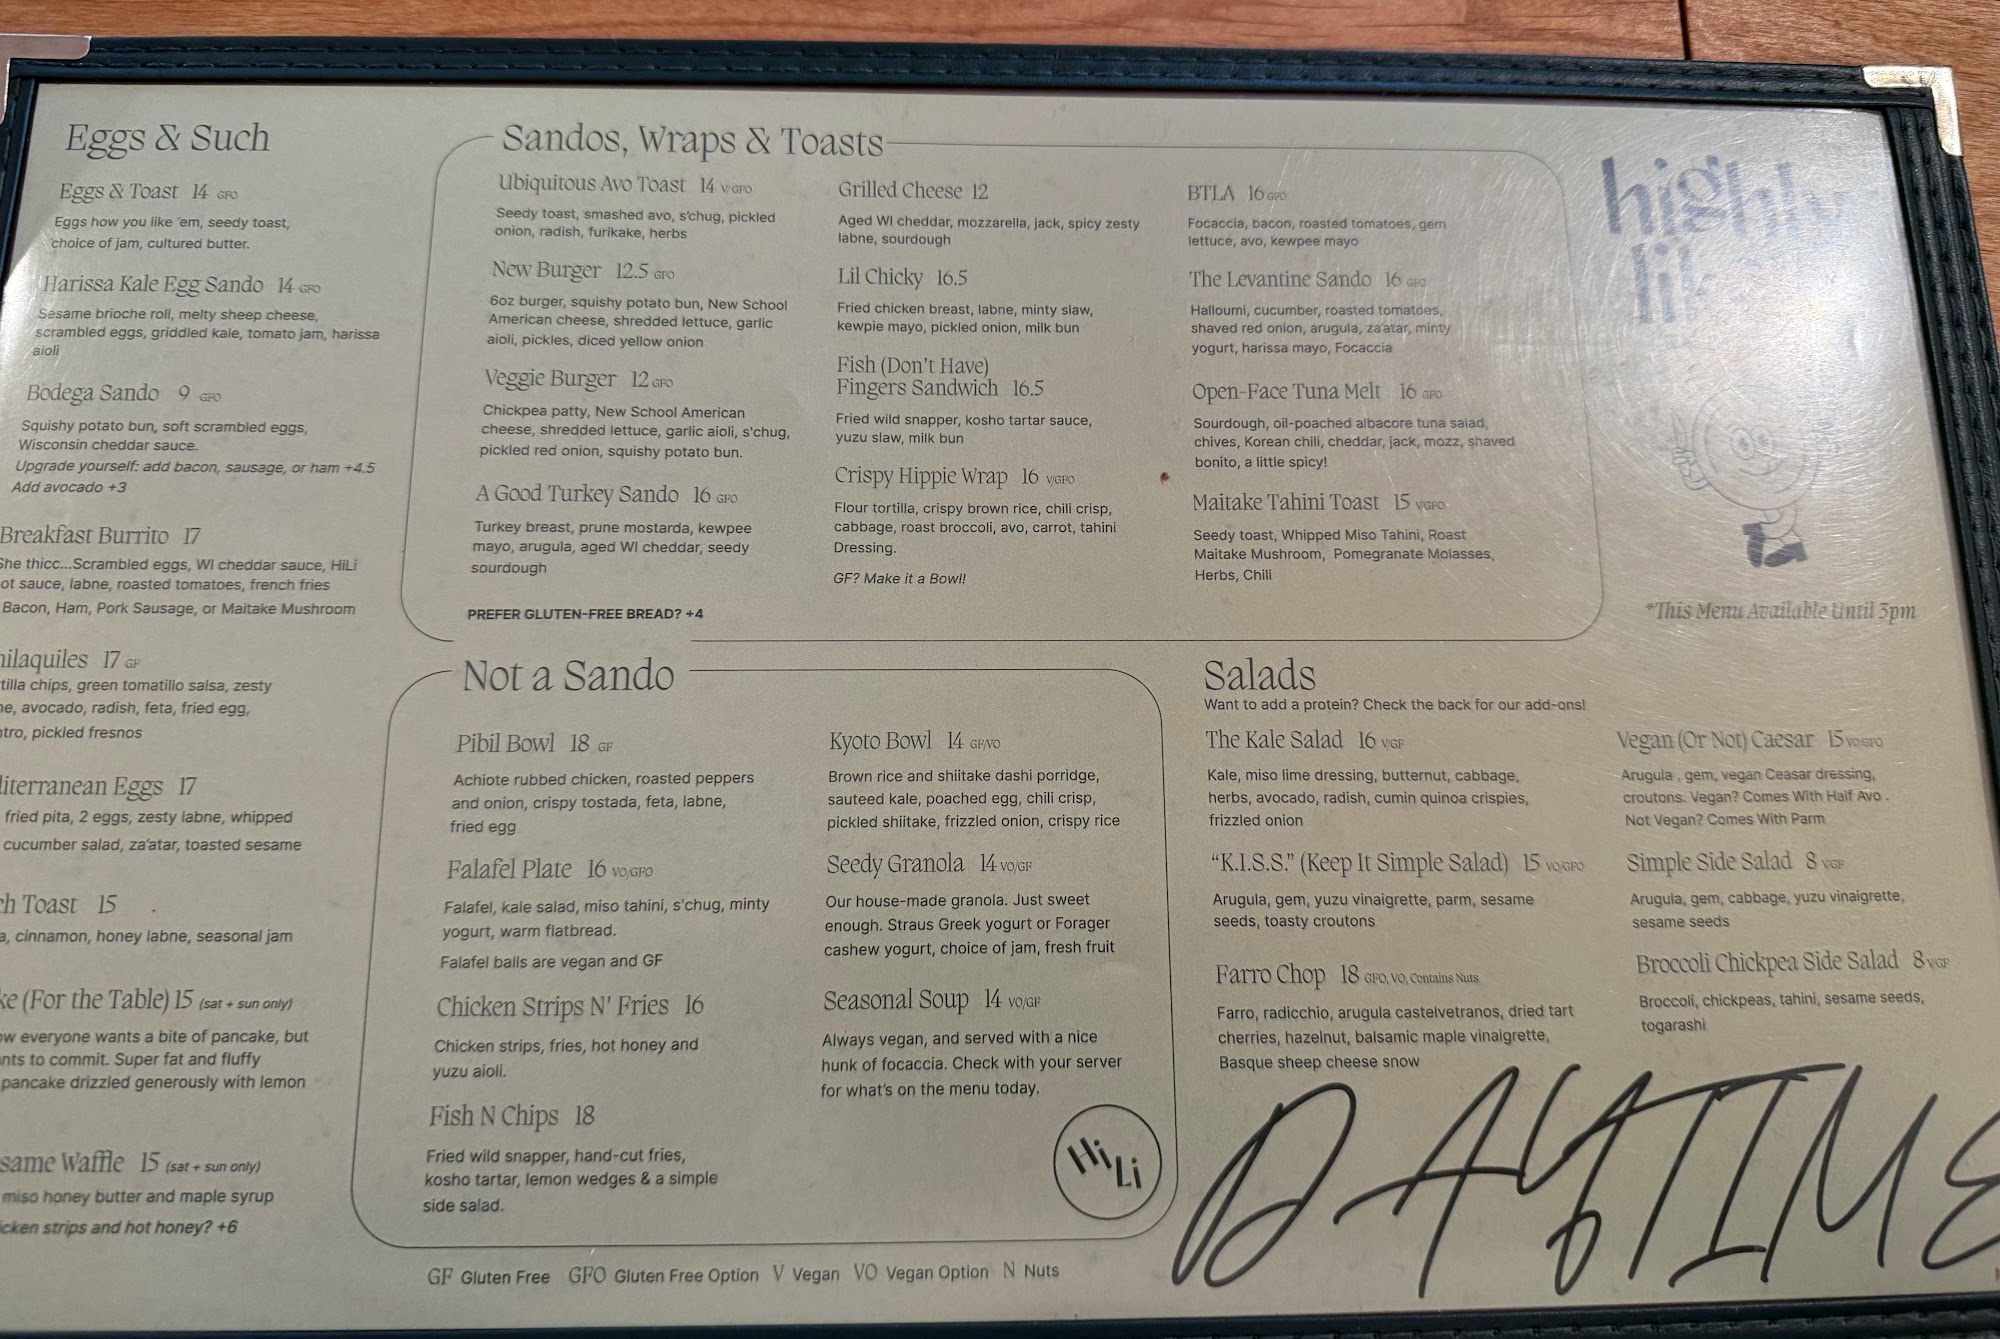 Eggs & Such
Eggs & Toast 14 GFO
Eggs how you like 'em, seedy toast,
choice of jam, cultured butter.
Harissa Kale Egg Sando 14 GFO
Sesame brioche roll, melty sheep cheese,
scrambled eggs, griddled kale, tomato jam, harissa
aioli
Bodega Sando 9 GFO
Squishy potato bun, soft scrambled eggs,
Wisconsin cheddar sauce.
Upgrade yourself: add bacon, sausage, or ham +4.5
Add avocado +3
Breakfast Burrito 17
She thicc...Scrambled eggs, WI cheddar sauce, HiLi
ot sauce, labne, roasted tomatoes, french fries
Bacon, Ham, Pork Sausage, or Maitake Mushroom
hilaquiles 17 GF
tilla chips, green tomatillo salsa, zesty
ne, avocado, radish, feta, fried egg,
ntro, pickled fresnos
literranean Eggs 17
fried pita, 2 eggs, zesty labne, whipped
cucumber salad, za'atar, toasted sesame
ch Toast 15
a, cinnamon, honey labne, seasonal jam
ke (For the Table) 15 (sat + sun only)
ow everyone wants a bite of pancake, but
nts to commit. Super fat and fluffy
pancake drizzled generously with lemon
same Waffle 15 (sat + sun only)
miso honey butter and maple syrup
icken strips and hot honey? +6
Sandos, Wraps & Toasts
Ubiquitous Avo Toast 14 V/GFO
Seedy toast, smashed avo, s'chug, pickled
onion, radish, furikake, herbs
New Burger 12.5 GFO
6oz burger, squishy potato bun, New School
American cheese, shredded lettuce, garlic
aioli, pickles, diced yellow onion
Veggie Burger 12 GFO
Chickpea patty, New School American
cheese, shredded lettuce, garlic aioli, s'chug,
pickled red onion, squishy potato bun.
A Good Turkey Sando 16 GFO
Turkey breast, prune mostarda, kewpee
mayo, arugula, aged WI cheddar, seedy
sourdough
PREFER GLUTEN-FREE BREAD? +4
Grilled Cheese 12
Aged WI cheddar, mozzarella, jack, spicy zesty
labne, sourdough
Lil Chicky 16.5
Fried chicken breast, labne, minty slaw,
kewpie mayo, pickled onion, milk bun
Fish (Don't Have)
Fingers Sandwich 16.5
Fried wild snapper, kosho tartar sauce,
yuzu slaw, milk bun
Crispy Hippie Wrap 16 V/GFO
Flour tortilla, crispy brown rice, chili crisp,
cabbage, roast broccoli, avo, carrot, tahini
Dressing.
GF? Make it a Bowl!
BTLA 16 GFO
Focaccia, bacon, roasted tomatoes, gem
lettuce, avo, kewpee mayo
The Levantine Sando 16 GFO
Halloumi, cucumber, roasted tomatoes,
shaved red onion, arugula, za'atar, minty
yogurt, harissa mayo, Focaccia
Open-Face Tuna Melt 16 GFO
Sourdough, oil-poached albacore tuna salad,
chives, Korean chili, cheddar, jack, mozz, shaved
bonito, a little spicy!
Maitake Tahini Toast 15 V/GFO
Seedy toast, Whipped Miso Tahini, Roast
Maitake Mushroom, Pomegranate Molasses,
Herbs, Chili
highly
*This Menu Available Until 3pm
Not a Sando
Pibil Bowl 18 GF
Achiote rubbed chicken, roasted peppers
and onion, crispy tostada, feta, labne,
fried egg
Falafel Plate 16 VO/GFO
Falafel, kale salad, miso tahini, s'chug, minty
yogurt, warm flatbread.
Falafel balls are vegan and GF
Chicken Strips N' Fries 16
Chicken strips, fries, hot honey and
yuzu aioli.
Fish N Chips 18
Fried wild snapper, hand-cut fries,
kosho tartar, lemon wedges & a simple
side salad.
Kyoto Bowl 14 GF/VO
Brown rice and shiitake dashi porridge,
sauteed kale, poached egg, chili crisp,
pickled shiitake, frizzled onion, crispy rice
Seedy Granola 14 VO/GF
Our house-made granola. Just sweet
enough. Straus Greek yogurt or Forager
cashew yogurt, choice of jam, fresh fruit
Seasonal Soup 14 VO/GF
Always vegan, and served with a nice
hunk of focaccia. Check with your server
for what's on the menu today.
HiLi
Salads
Want to add a protein? Check the back for our add-ons!
The Kale Salad 16 V/GF
Kale, miso lime dressing, butternut, cabbage,
herbs, avocado, radish, cumin quinoa crispies,
frizzled onion
"K.I.S.S." (Keep It Simple Salad) 15 VO/GFO
Arugula, gem, yuzu vinaigrette, parm, sesame
seeds, toasty croutons
Farro Chop 18 GFO, VO, Contains Nuts
Farro, radicchio, arugula castelvetranos, dried tart
cherries, hazelnut, balsamic maple vinaigrette,
Basque sheep cheese snow
Vegan (Or Not) Caesar 15 VO/GFO
Arugula , gem, vegan Ceasar dressing,
croutons. Vegan? Comes With Half Avo .
Not Vegan? Comes With Parm
Simple Side Salad 8 V/GF
Arugula, gem, cabbage, yuzu vinaigrette,
sesame seeds
Broccoli Chickpea Side Salad 8 V/GF
Broccoli, chickpeas, tahini, sesame seeds,
togarashi
DAYTIME
GF Gluten Free GFO Gluten Free Option V Vegan VO Vegan Option N Nuts